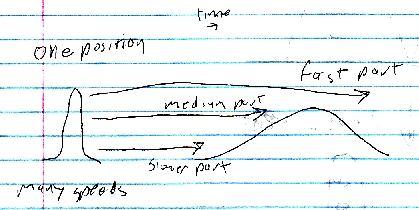 time
One position
fast part
medium part
slower part
Many speeds